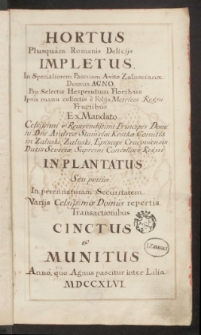 HORTUS
Plusquam Romanis Delicijs
IMPLETUS
In Specialiorem Domum Avitæ Zalusciorum
Domui AGNO
Pijs Selectis Hesperidum Floribus
Ipsâ manu collectis
Fructibus
Ex Mandato
Celsissimi & Reverendissimi Principis Domini
Dni Andreæ Stanislai Kostka Comitis
in Zaluski Zaluski, Episcopi Cracoviensis
Ducis Severiæ Supremi Cancellarij Regni
IN PLANTATUS
Seu potius
In perennaturam Securitatem
Varijs Celsissimæ Domûs repertis
Transactionibus
CINCTUS
&
MUNITUS
Anno, quo Agnus pascitur inter Lilia
MDCCXLVI.